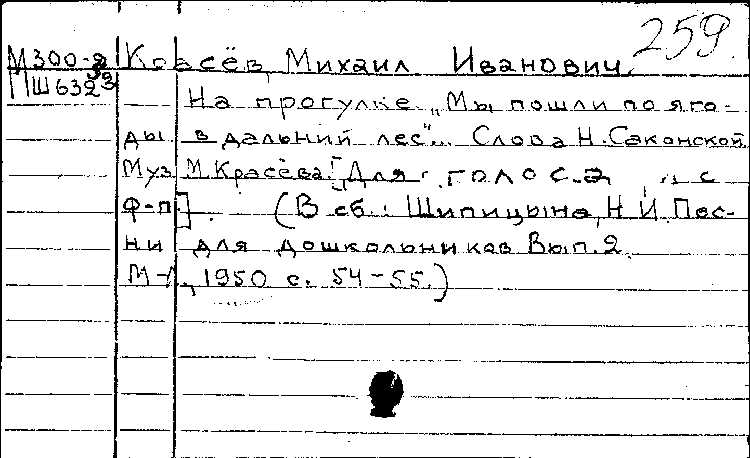 259.
М300-2 Красёв, Михаил Иванович.
Ш632
На прогулке „Мы пошли по яго-
ды в дальний лес"... Слова Н. Саконской
Муз М. Красёва. [Для голоса с
ф-п]. (В сб.: Шипицына, Н. И. Пес-
ни для дошкольников Вып. 2.
М-Л, 1950 с. 54-55.)